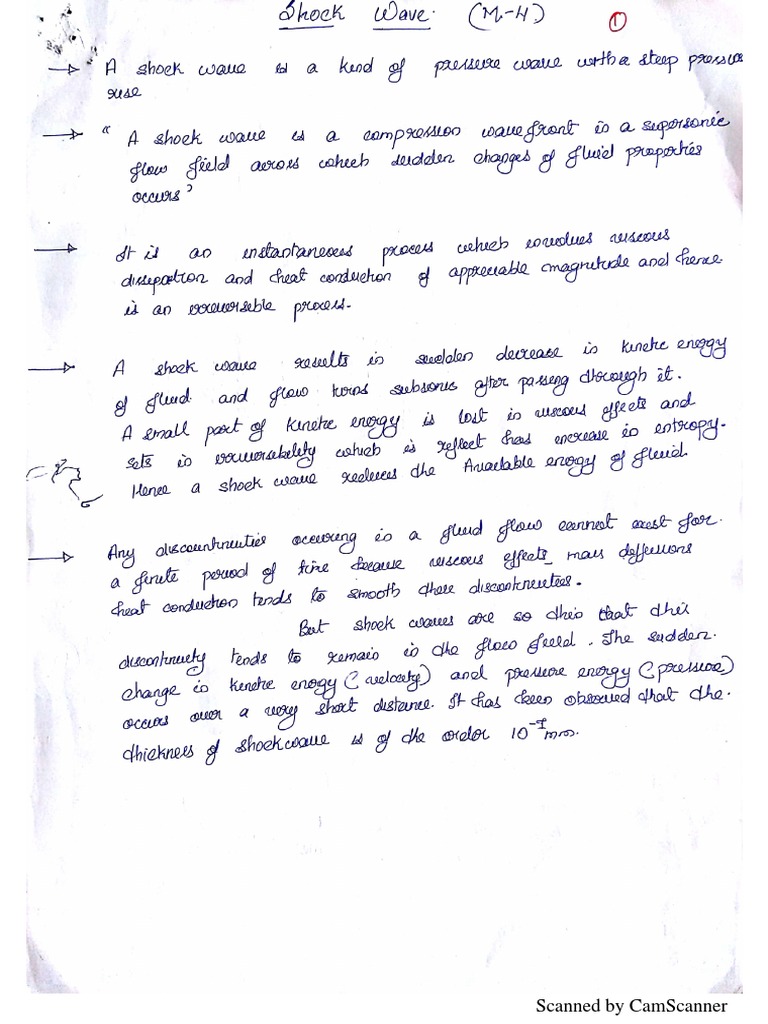 Shock Wave. (M-4) 1
→ A shock wave is a kind of pressure wave with a steep pressure
rise
→ " A shock wave is a compression wave front in a supersonic
flow field across which sudden changes of fluid properties
occurs"
→ It is an instantaneous process which involves viscous
dissipation and heat conduction of appreciable magnitude and hence
is an irreversible process.
→ A shock wave results in sudden decrease in kinetic energy
of fluid and flow turns subsonic after passing through it.
A small part of kinetic energy is lost in viscous effects and
sets in irreversibility which is reflect has increase in entropy.
Hence a shock wave reduces the Available energy of fluid.
→ Any discontinuities occuring in a fluid flow cannot exist for
a finite period of time because viscous effects, mass diffusions
heat conduction tends to smooth these discontinuities.
But shock waves are so thin that this
discontinuity tends to remain in the flow field. The sudden
change in kinetic energy (velocity) and pressure energy (pressure)
occurs over a very short distance. It has been observed that the
thickness of shockwave is of the order mm.
Scanned by CamScanner